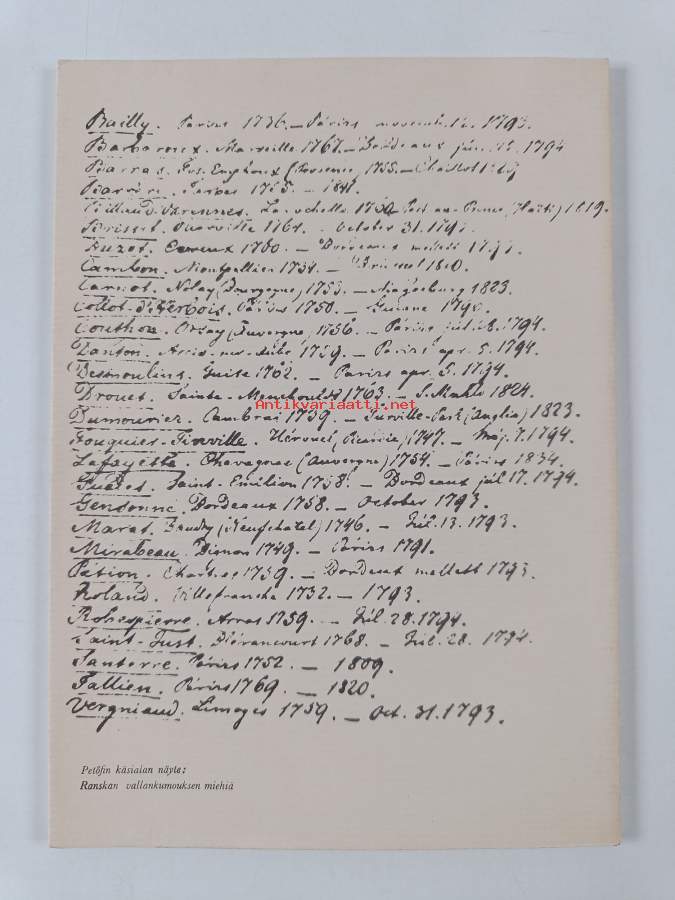 Bailly. Páris 1736. – Páris novemb. 12. 1793.
Barbaroux. Marseille 1767. – Bordeaux jún. 1794
Barras. Fos. Emphoux (Provence) 1755. – Chaillot
Barrère. Tarbes 1755 – 1841.
Billaud-Varennes. La-rochelle Port-au-Prince (Haiti) 1819.
Brissot. Ouarville 1754. – October 31. 1793.
Buzot. Evreux 1760. – Bordeaux mellett 1793.
Cambon. Montpellier 1754. –
Carnot. Nolay (Bourgogne) 1753. – Magdeburg 1823.
Collot-d'Herbois. Páris 1750. – Guiana 1796.
Couthon. Orsay (Auvergne) 1756. – Páris júl. 28. 1794.
Danton. Arcis-sur-Aube 1759. – Páris apr. 5. 1794.
Desmoulins. Guise 1762. – Páris apr. 5. 1794.
Drouet. Sainte-Menehould 1763. – 1824.
Dumouriez. Cambrai 1739. – Turville-Park (Anglia) 1823.
Fouquier-Tinville. Hérouel (Picardia) 1747. – Máj. 7. 1794.
Lafayette. Chavagnac (Auvergne) 1754. – Páris 1834.
Guadet. Saint-Emilion 1758. – Bordeaux júl 17. 1794.
Gensonné. Bordeaux 1758. – October 1793.
Marat. Baudry (Neufchatel) 1746. – Júl. 13. 1793.
Mirabeau. Bignon 1749. – Páris 1791.
Pétion. Chartres 1759. – Bordeaux mellett 1793.
Roland. Villefranche 1732. – 1793.
Robespierre. Arras 1759. – Júl. 28. 1794.
Saint-Just. Blérancourt 1768. – Júl. 28. 1794.
Santerre. Páris 1752. – 1809.
Tallien. Páris 1769. – 1820.
Vergniaud. Limoges 1759. – Oct. 31. 1793.
Antikvariaatti.net
Petőfin käsialan näyte:
Ranskan vallankumouksen miehiä